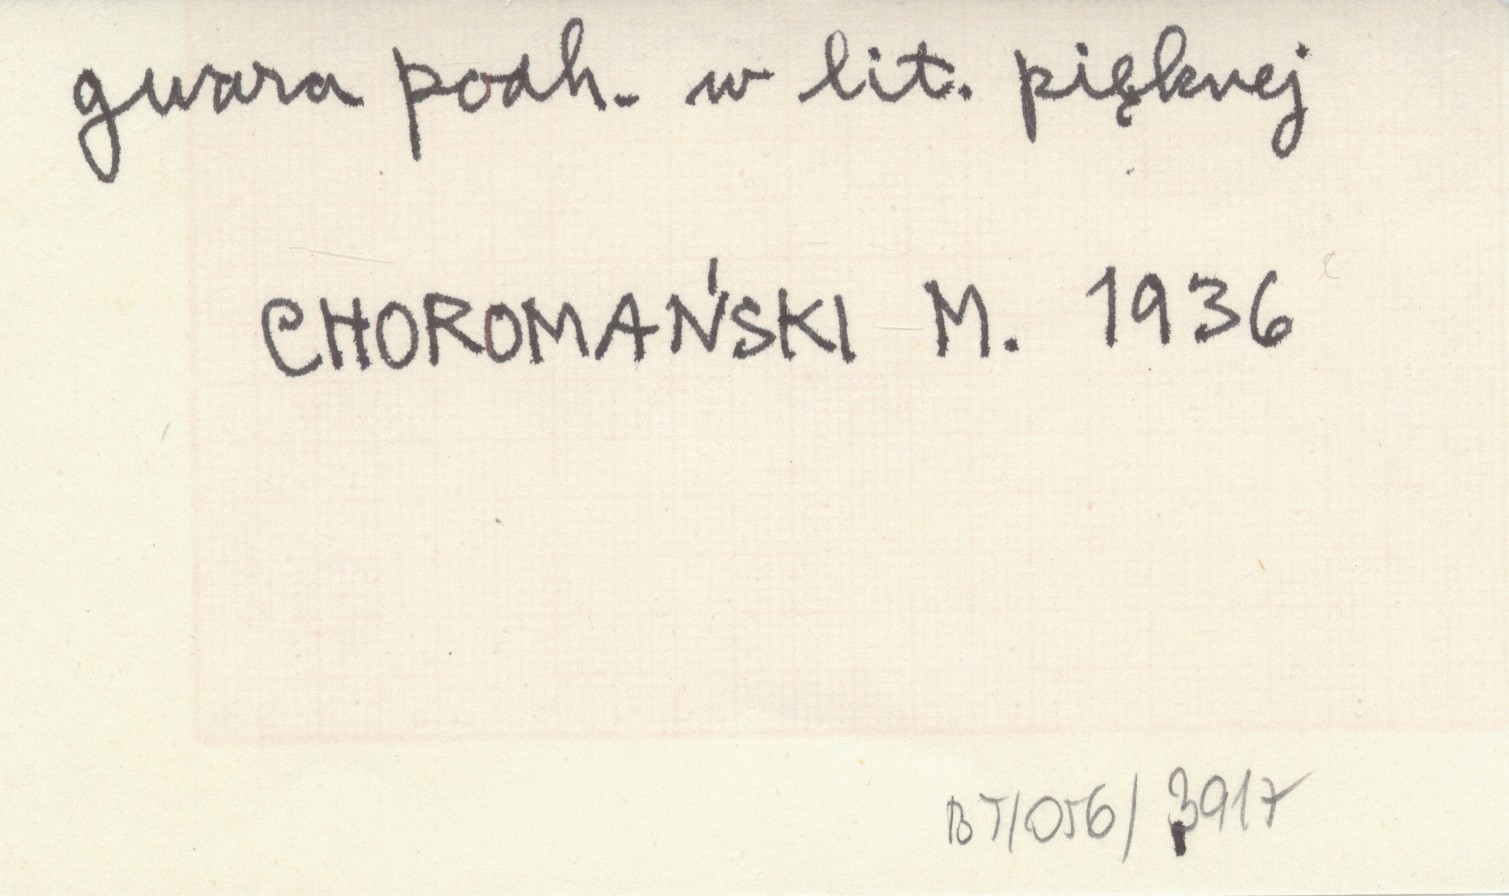 gwara podh. w lit. pięknej
CHOROMAŃSKI M. 1936
BT/056/3917